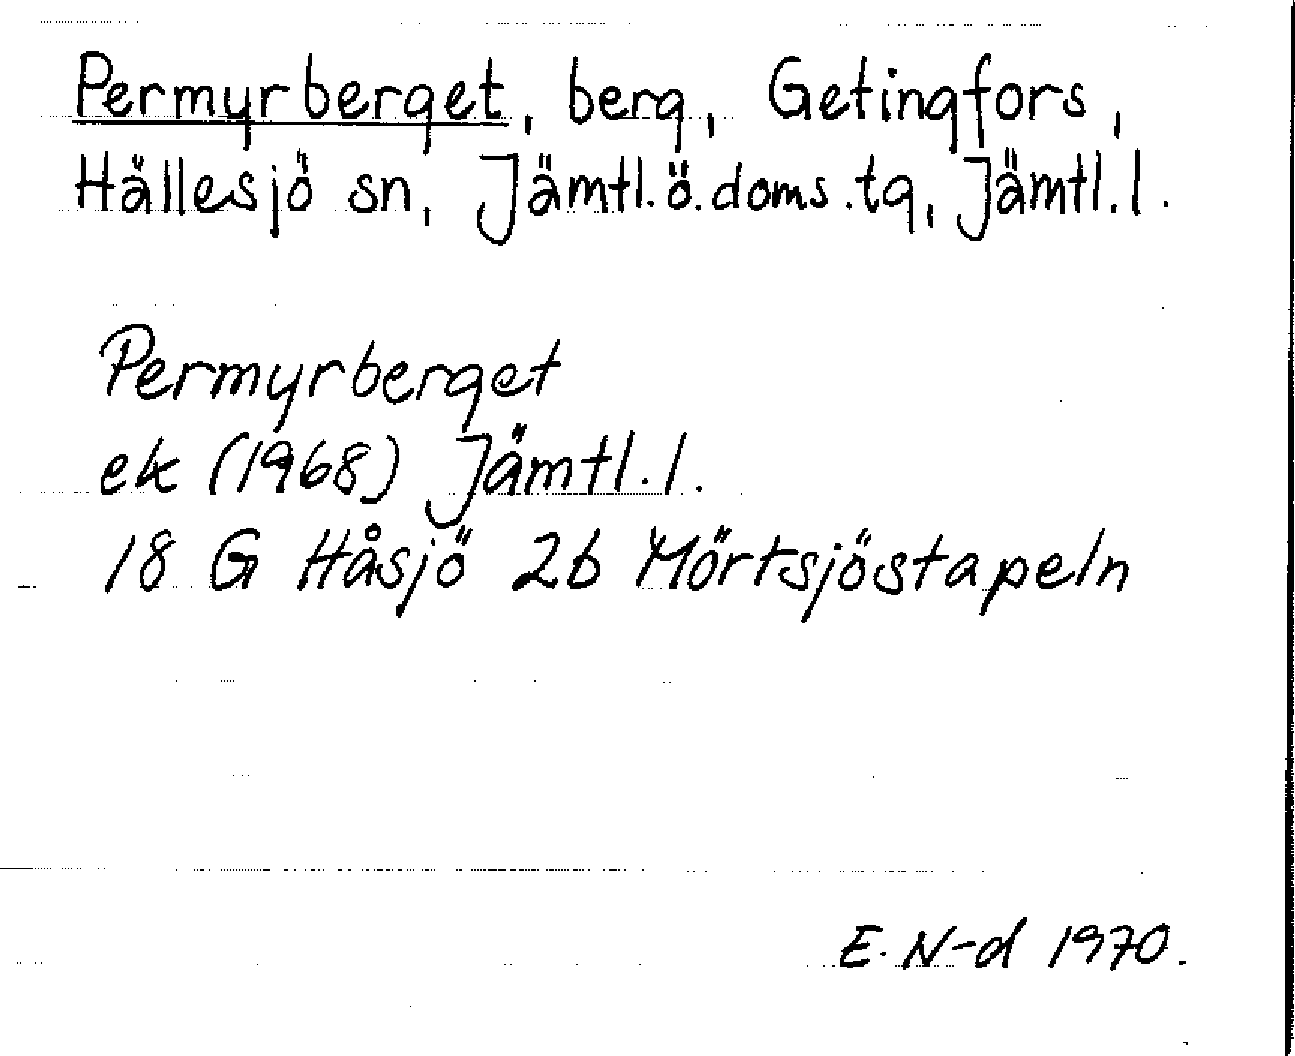 Permyrberget, berg, Getingfors,
Hällesjö sn, Jämtl.ö.doms.tg, Jämtl.l.
Permyrberget
ek (1968) Jämtl.l.
18 G Håsjö 2b Mörtsjöstapeln
E. N-d 1970.